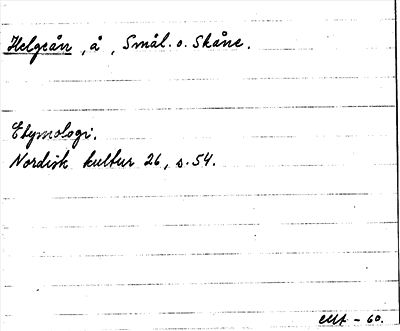 Helgeån, å, Smål. o. Skåne.
Etymologi.
Nordisk kultur 26, s. 54.
- 60.